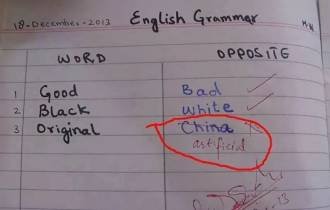 18-December-2013 English Grammar
WORD OPPOSITE
1 Good Bad
2 Black White
3 Original China
artificial